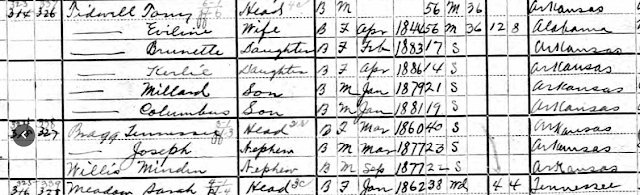 314 326 Tidwell Tony Head B M 56 M 36 Arkansas
— Eviline Wife B F Apr 1844 56 M 36 12 8 Alabama
— Brunette Daughter B F Feb 1883 17 S Arkansas
— Kerlie Daughter B F Apr 1886 14 S Arkansas
— Millard Son B M Jan 1879 21 S Arkansas
— Columbus Son B M Jan 1881 19 S Arkansas
315 327 Bragg Tennessee Head B F Mar 1860 40 S Arkansas
— Joseph Nephew B M Mar 1877 23 S Arkansas
Willis Minden Nephew B M Sep 1877 22 S Arkansas
316 328 Meadow Sarah Head B F Jan 1862 38 Wd 4 4 Tennessee